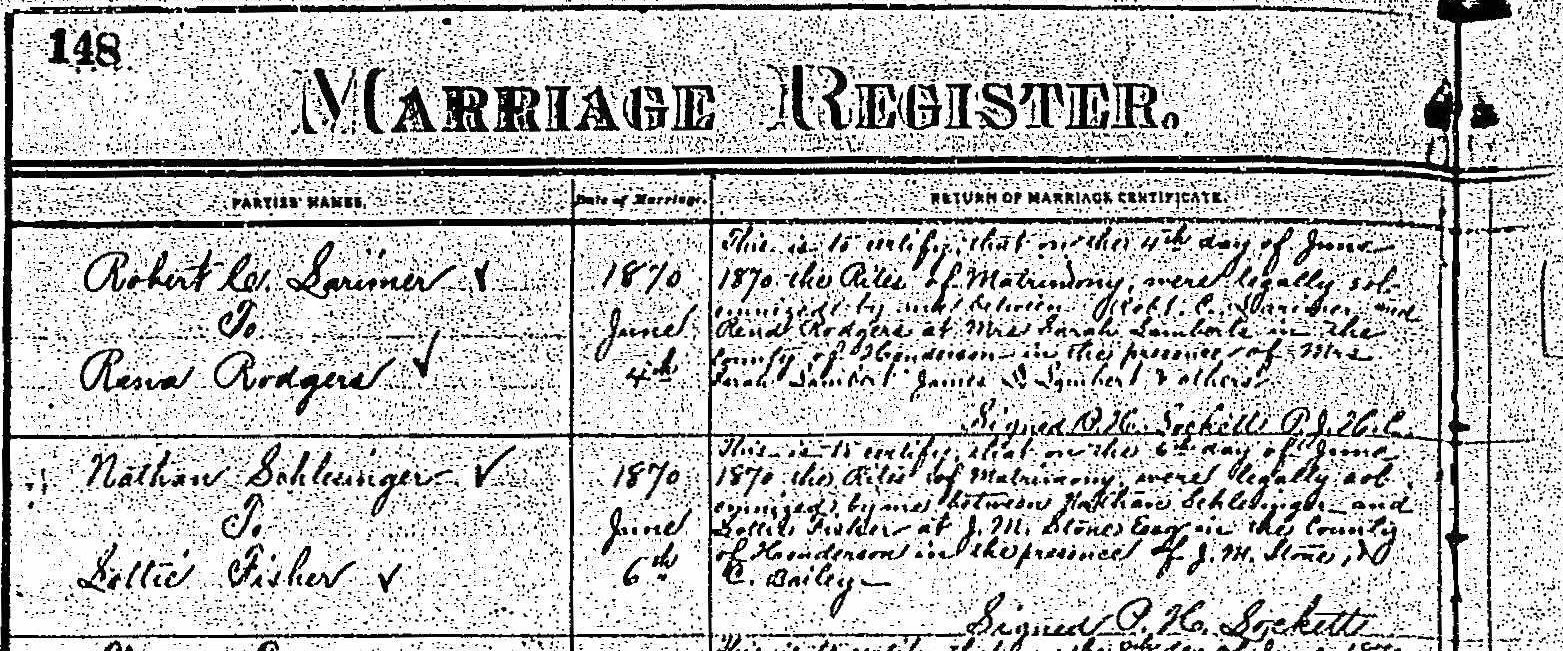 148
MARRIAGE REGISTER.
PARTIES' NAMES.
Date of Marriage.
RETURN OF MARRIAGE CERTIFICATE.
Robert C. Larimer
To
Rena Rodgers
1870
June
4th
This is to certify, that on the 4th day of June
1870 the Rites of Matrimony, were legally sol-
emnized by me between Robt. C. Larimer and
Rena Rodgers at Mrs Sarah Lamberts in the
county of Henderson in the presence of Mrs
Sarah Lambert James S Lambert & others
Signed P. H. Lockett P.J.H.C.
Nathan Schlesinger
To
Lottie Fisher
1870
June
6th
This is to certify, that on the 6th day of June
1870 the Rites of Matrimony were legally sol-
emnized by me between Nathan Schlesinger and
Lottie Fisher at J. M. Stones Esq in the County
of Henderson in the presence of J. M. Stone, &
C. Bailey
Signed P. H. Lockett
This is to certify that on the day of